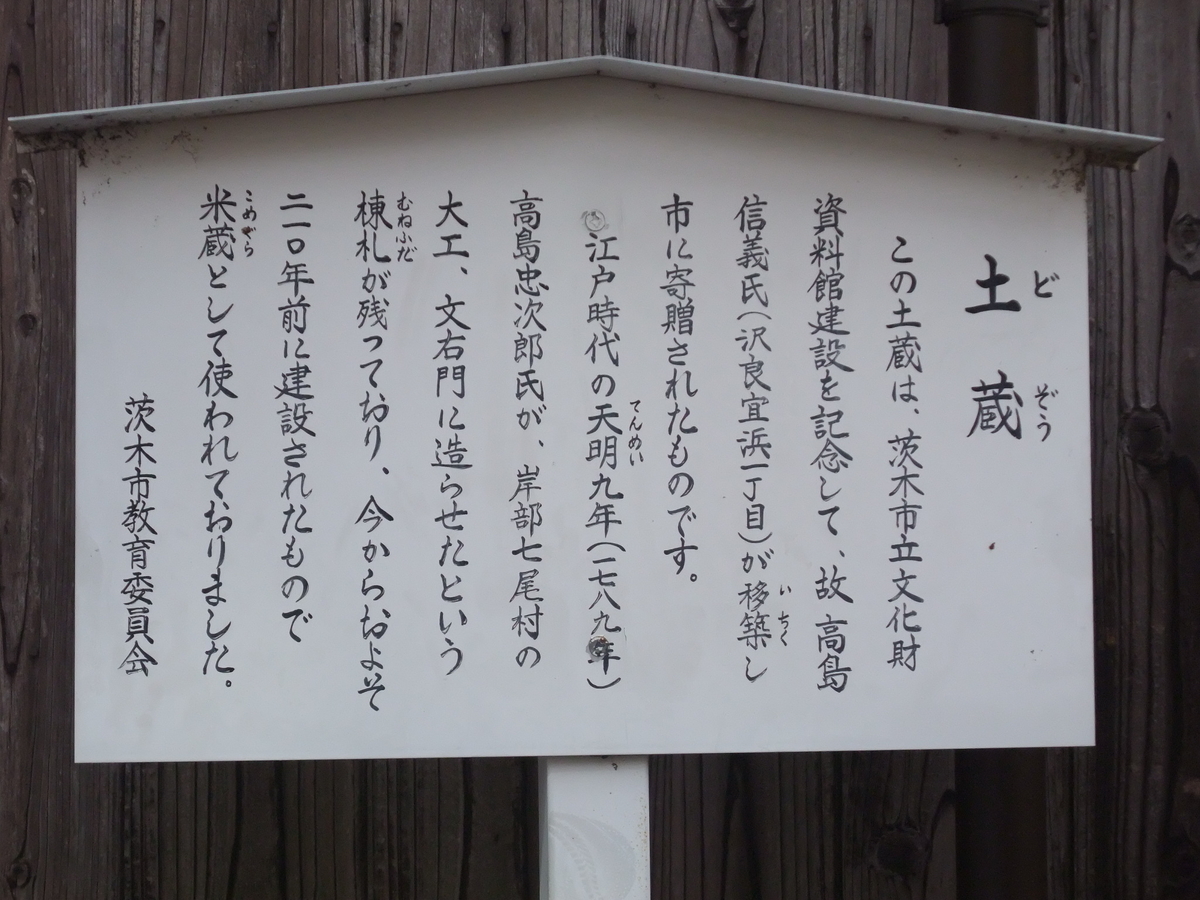 土蔵
どぞう
この土蔵は、茨木市立文化財
資料館建設を記念して、故 高島
信義氏(沢良宜浜一丁目)が移築し
いちく
市に寄贈されたものです。
江戸時代の天明九年(一七八九年)
てんめい
高島忠次郎氏が、岸部七尾村の
大工、文右門に造らせたという
棟札が残っており、今からおよそ
むねふだ
二一〇年前に建設されたもので
米蔵として使われておりました。
こめぐら
茨木市教育委員会